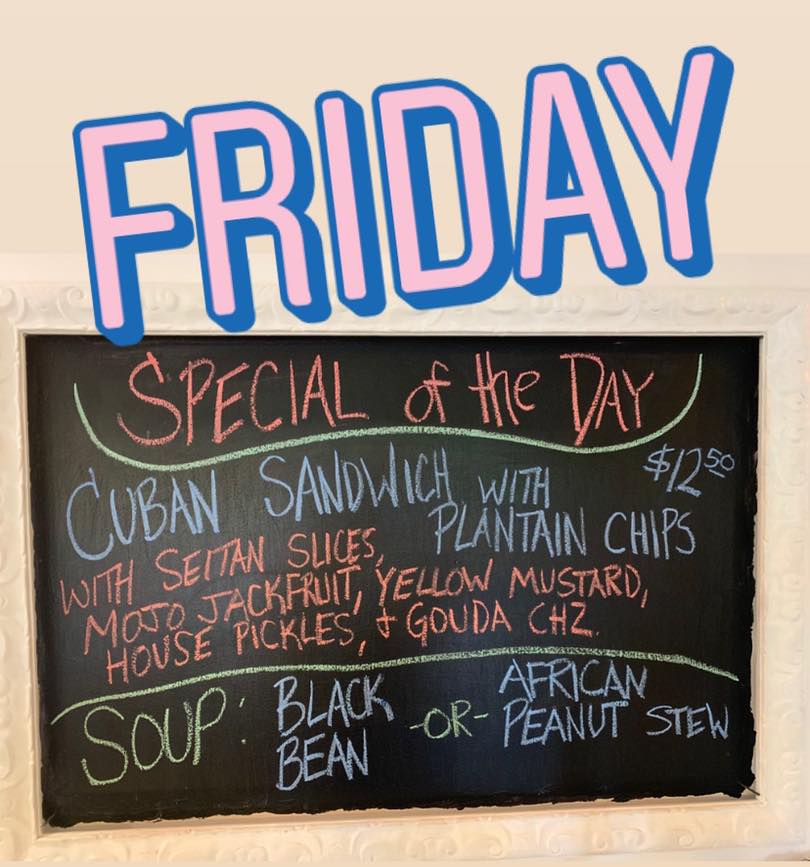 FRIDAY
SPECIAL of the DAY
CUBAN SANDWICH WITH $12.50
PLANTAIN CHIPS
WITH SEITAN SLICES,
MOJO JACKFRUIT, YELLOW MUSTARD,
HOUSE PICKLES, & GOUDA CHZ.
SOUP: BLACK BEAN -OR- AFRICAN PEANUT STEW